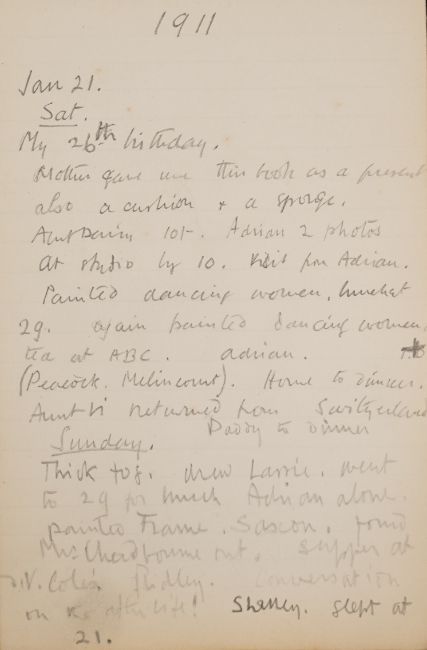 1911
Jan 21.
Sat.
My 26th birthday.
Mother gave me this book as a present
also a cushion & a sponge.
Aunt 10/-. Adrian 2 photos
At studio by 10. Visit from Adrian.
Painted dancing women, lunch at
29. again painted dancing women
tea at ABC. Adrian.
(Peacock. Melincourt). Home to dinner.
Aunt Vi returned from Switzerland
Daddy to dinner
Sunday.
Thick fog. drew Lassie. went
to 29 for lunch Adrian alone.
painted Frame. Saxon. found
Mrs out. Supper at
Ridley. Conversation
on the after life! Shelley. slept at
21.